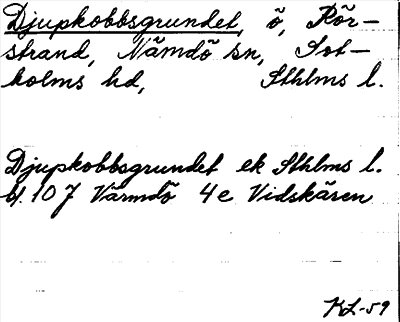 Djupkobbsgrundet, ö, Rör-
strand, Nämdö sn, Sot-
holms hd, Sthlms l.
Djupkobbsgrundet ek Sthlms l.
bl. 107 Värmdö 4e Vidskären
KL-59